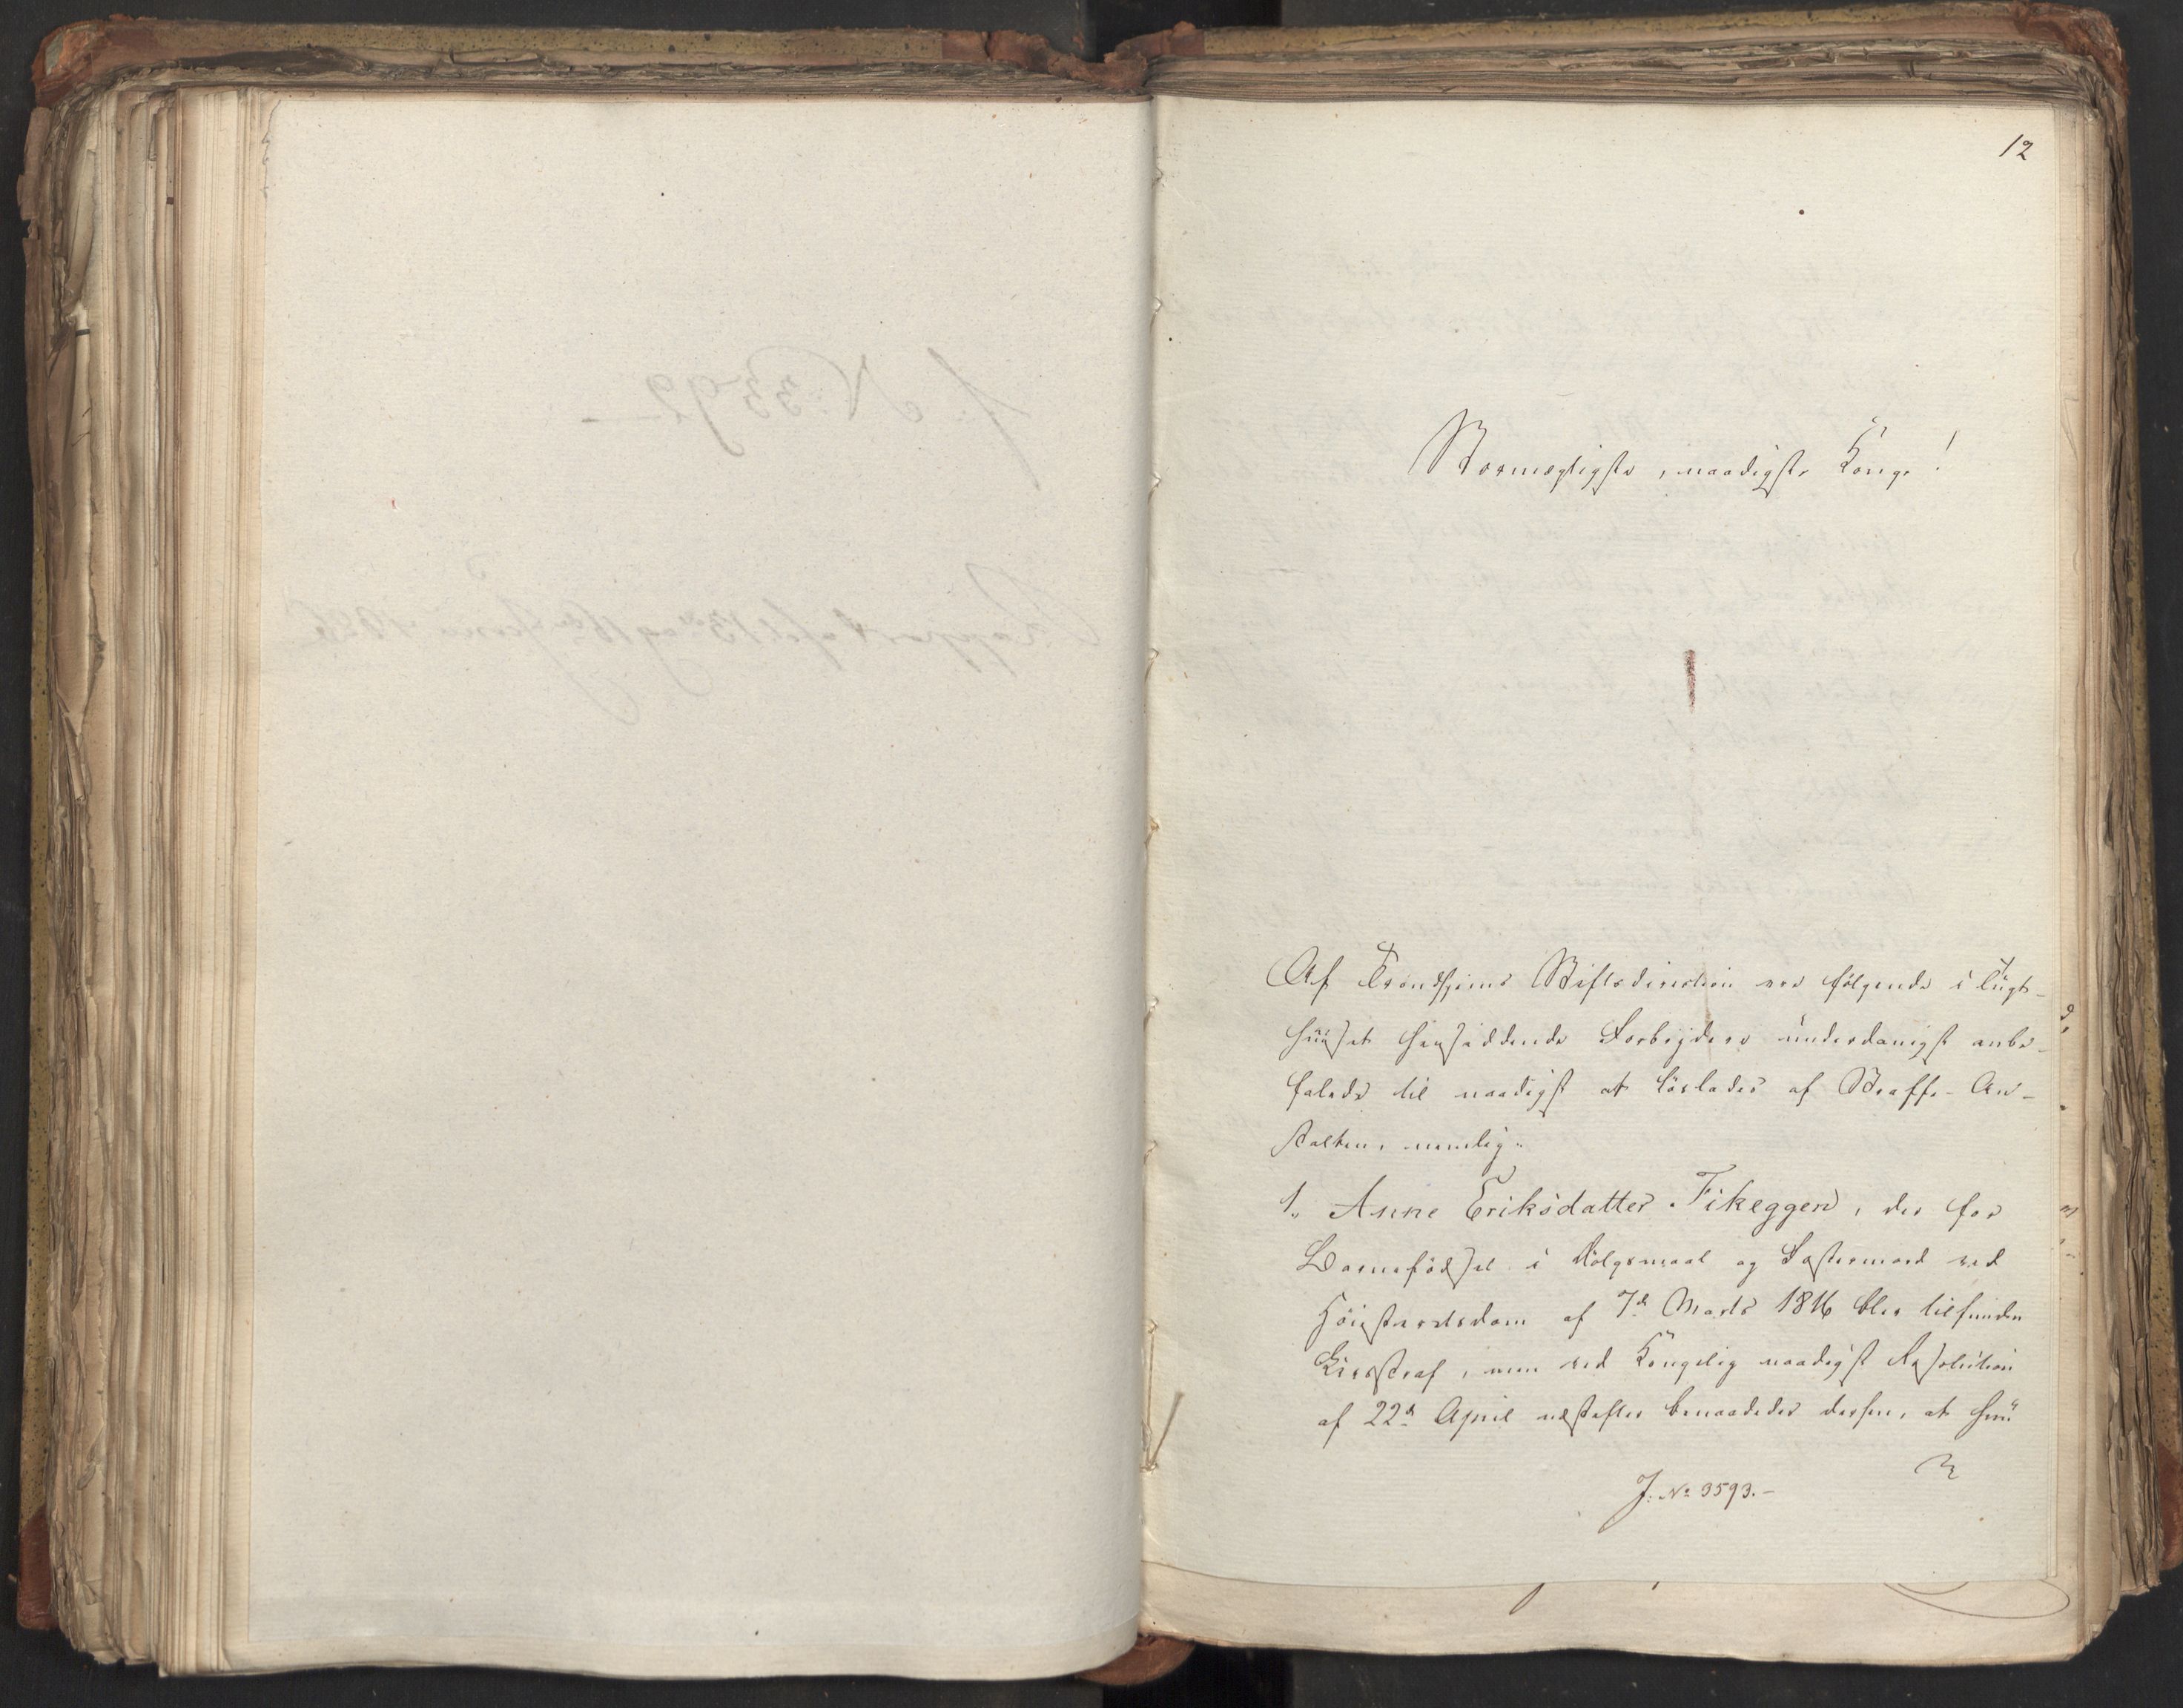 12
Stormægtigste, naadigste Konge!
Af Trondhjems Stiftsdirection ere følgende i Tugt-
huuset hensiddende Forbrydere underdanigst anbe-
falede til naadigst at løslades af Straffe-An-
stalten, nemlig:
1. Anne Eriksdatter Fikeggen, der for
Barnefødsel i Dølgsmaal og Fostermord ved
Høiesteretsdom af 7de Marts 1816 blev tilfunden
Livsstraf, men ved Kongelig naadigst Resolution
af 22de April næstefter benaadedes derhen, at hun
J: No 3593.-